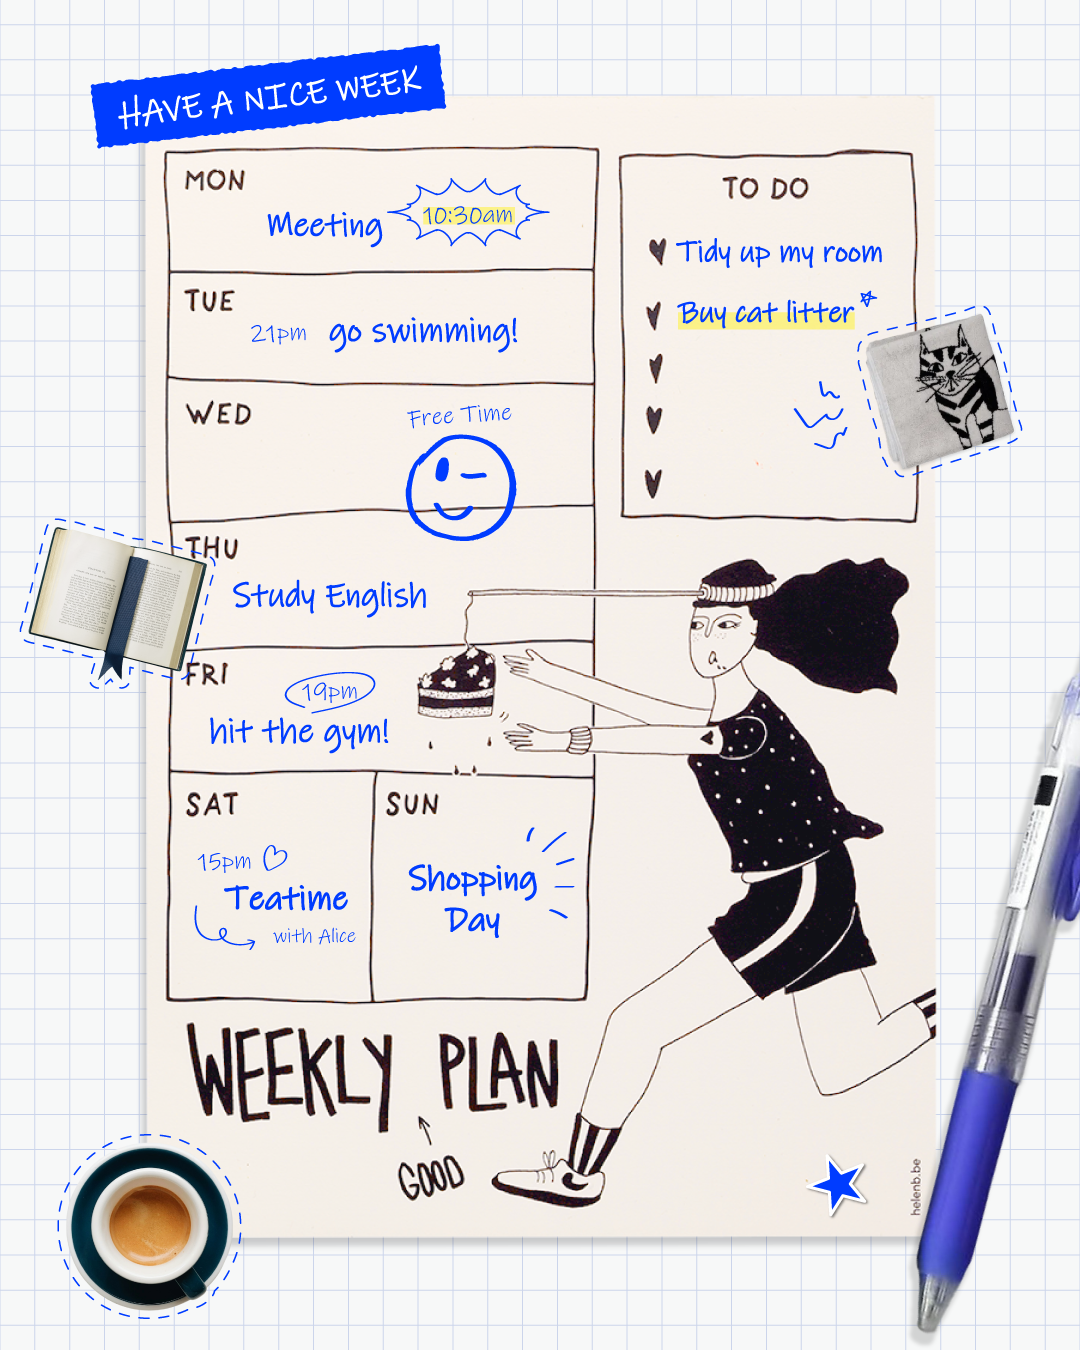 HAVE A NICE WEEK
MON
Meeting 10:30am
TUE
21pm go swimming!
WED
Free Time
THU
Study English
FRI
19pm
hit the gym!
SAT
15pm
Teatime
with Alice
SUN
Shopping
Day
TO DO
Tidy up my room
Buy cat litter
WEEKLY PLAN
GOOD
helenb.be